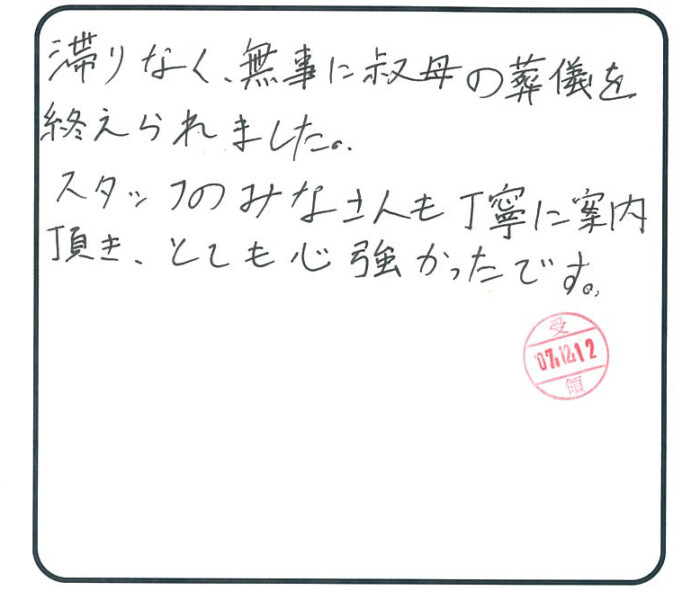 滞りなく、無事に叔母の葬儀を
終えられました。
スタッフのみなさんも丁寧に案内
頂き、とても心強かったです。
受
'07.12.12
領